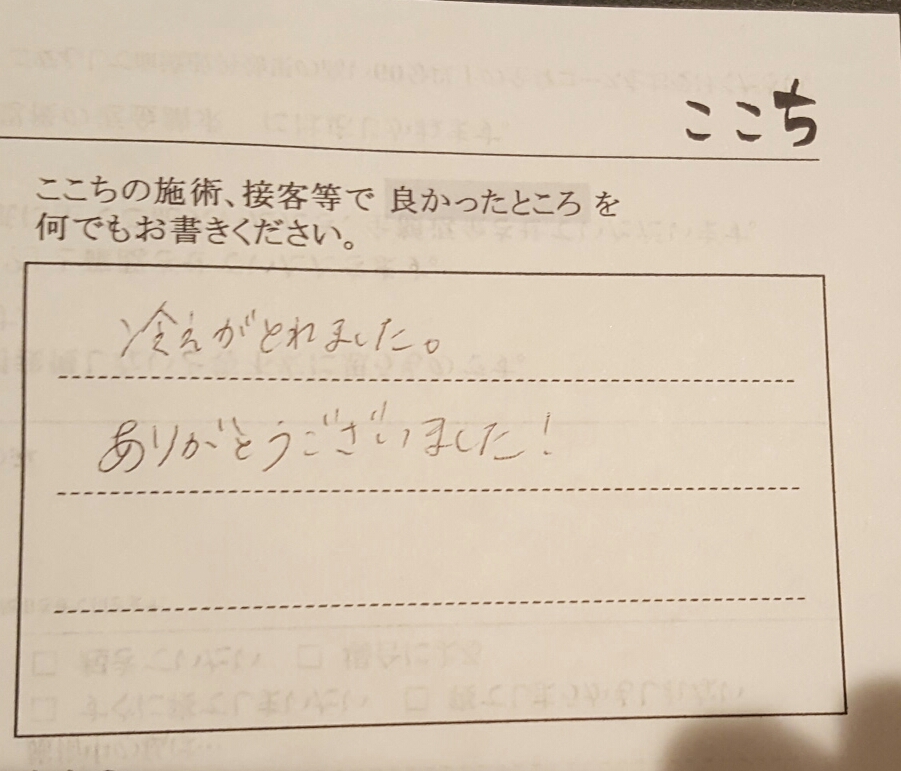 ここち
ここちの施術、接客等で 良かったところ を
何でもお書きください。
冷えがとれました。
ありがとうございました!